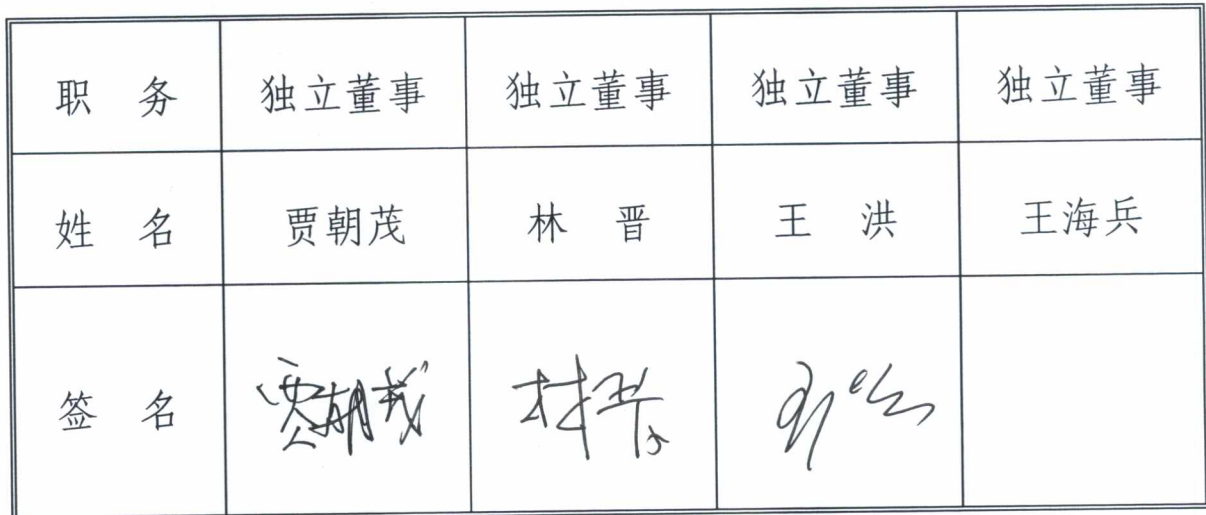 职 务 独立董事 独立董事 独立董事 独立董事
姓 名 贾朝茂 林 晋 王 洪 王海兵
签 名 贾朝茂 林晋